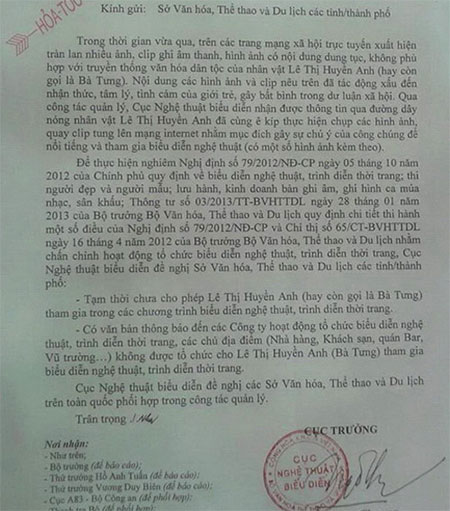 HỎA TỐC
Kính gửi: Sở Văn hóa, Thể thao và Du lịch các tỉnh/thành phố
Trong thời gian vừa qua, trên các trang mạng xã hội trực tuyến xuất hiện
tràn lan nhiều ảnh, clip ghi âm thanh, hình ảnh có nội dung dung tục, không phù
hợp với truyền thống văn hóa dân tộc của nhân vật Lê Thị Huyền Anh (hay còn
gọi là Bà Tưng). Nội dung các hình ảnh và clip nêu trên đã tác động xấu đến
nhận thức, tâm lý, tình cảm của giới trẻ, gây bất bình trong dư luận xã hội. Qua
công tác quản lý, Cục Nghệ thuật biểu diễn nhận được thông tin qua đường dây
nóng nhân vật Lê Thị Huyền Anh đã cùng ê kíp thực hiện chụp các hình ảnh,
quay clip tung lên mạng internet nhằm mục đích gây sự chú ý của công chúng để
nổi tiếng và tham gia biểu diễn nghệ thuật (có một số hình ảnh kèm theo).
Để thực hiện nghiêm Nghị định số 79/2012/NĐ-CP ngày 05 tháng 10 năm
2012 của Chính phủ quy định về biểu diễn nghệ thuật, trình diễn thời trang; thi
người đẹp và người mẫu; lưu hành, kinh doanh bản ghi âm, ghi hình ca múa
nhạc, sân khấu; Thông tư số 03/2013/TT-BVHTTDL ngày 28 tháng 01 năm
2013 của Bộ trưởng Bộ Văn hóa, Thể thao và Du lịch quy định chi tiết thi hành
một số điều của Nghị định số 79/2012/NĐ-CP và Chỉ thị số 65/CT-BVHTTDL
ngày 16 tháng 4 năm 2012 của Bộ trưởng Bộ Văn hóa, Thể thao và Du lịch nhằm
chấn chỉnh hoạt động tổ chức biểu diễn nghệ thuật, trình diễn thời trang, Cục
Nghệ thuật biểu diễn đề nghị Sở Văn hóa, Thể thao và Du lịch các tỉnh/thành
phố:
- Tạm thời chưa cho phép Lê Thị Huyền Anh (hay còn gọi là Bà Tưng)
tham gia trong các chương trình biểu diễn nghệ thuật, trình diễn thời trang.
- Có văn bản thông báo đến các Công ty hoạt động tổ chức biểu diễn nghệ
thuật, trình diễn thời trang, các chủ địa điểm (Nhà hàng, Khách sạn, quán Bar,
Vũ trường…) không được tổ chức cho Lê Thị Huyền Anh (Bà Tưng) tham gia
biểu diễn nghệ thuật, trình diễn thời trang.
Cục Nghệ thuật biểu diễn đề nghị các Sở Văn hóa, Thể thao và Du lịch
trên toàn quốc phối hợp trong công tác quản lý.
Trân trọng
CỤC TRƯỞNG
CỤC
NGHỆ THUẬT
BIỂU DIỄN
Nơi nhận:
- Như trên;
- Bộ trưởng (để báo cáo);
- Thứ trưởng Hồ Anh Tuấn (để báo cáo);
- Thứ trưởng Vương Duy Biên (để báo cáo);
- Cục A83 - Bộ Công an (để phối hợp);